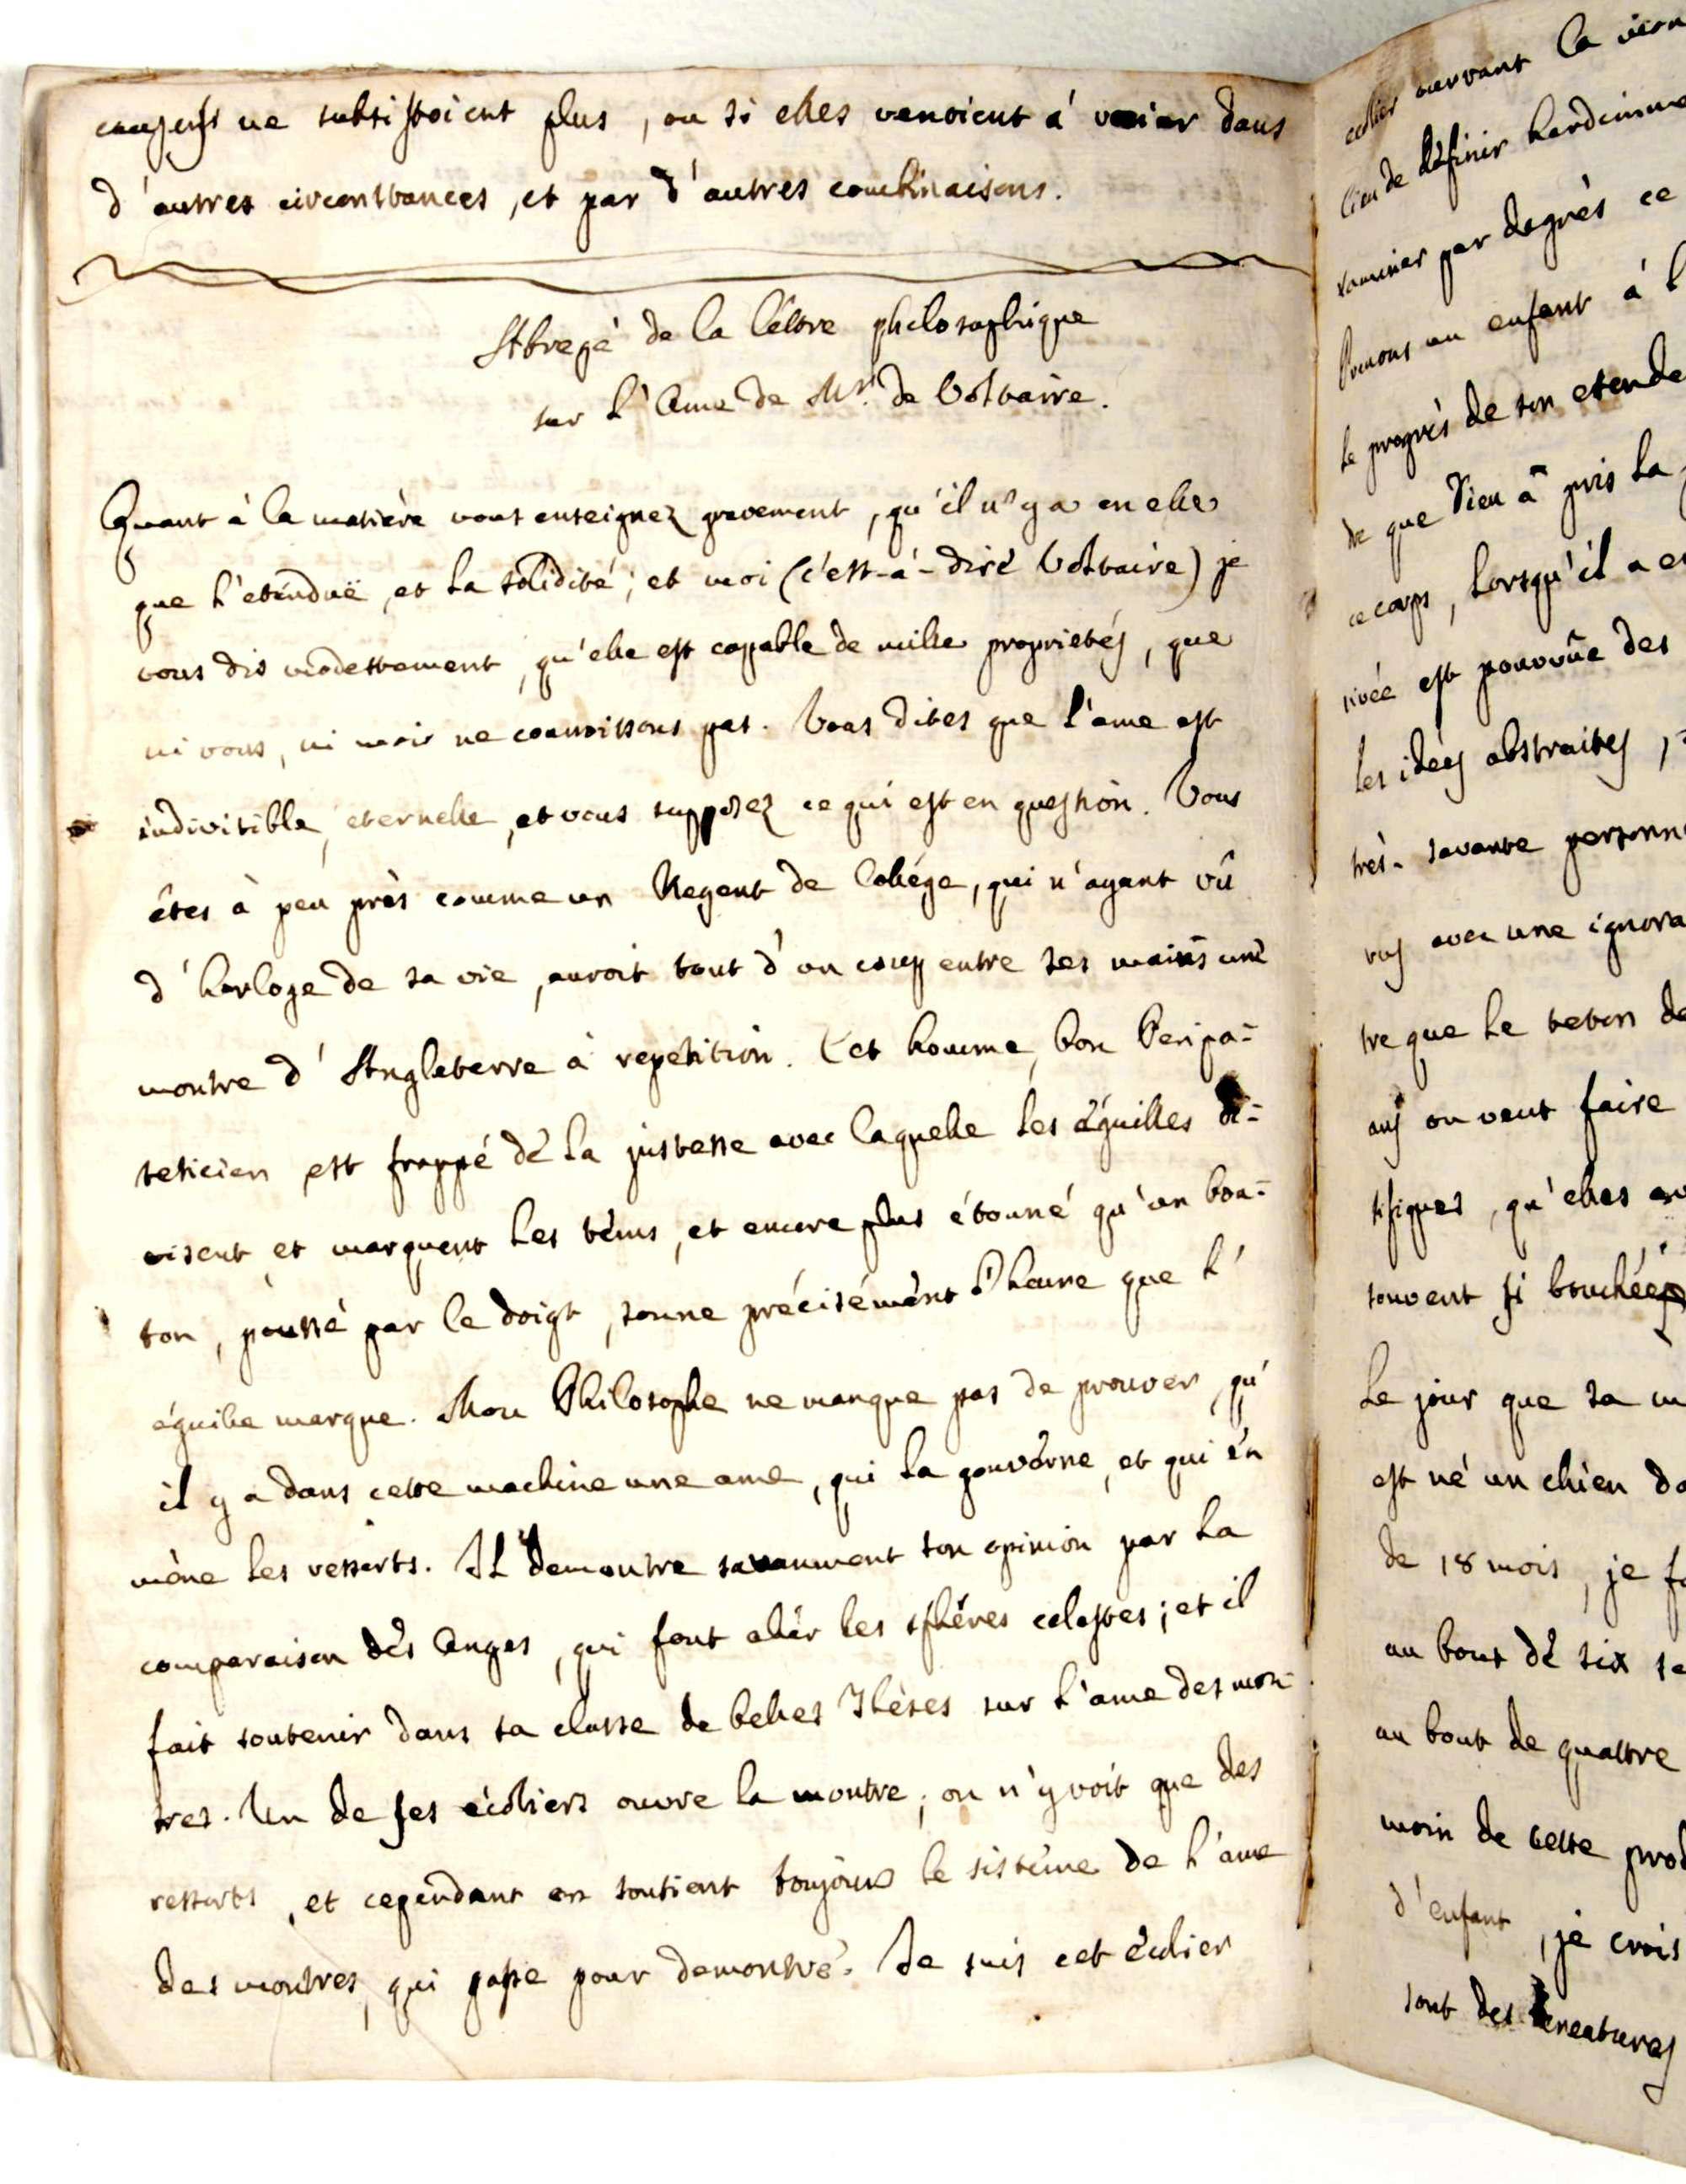 causes ne subsistoient plus, ou si elles venoient à varier dans
d'autres circonstances, et par d'autres combinaisons.
Abregé de la léttre philosophique
sur l'Ame de Mr. de Voltaire.
Quant à la matière vous enseignez gravement, qu'il n'y a en elle
que l'eténduë, et la solidité; et moi (c'est-à-dire Voltaire) je
vous dis modestement, qu'elle est capable de mille proprietés, que
ni vous, ni moi ne connoissons pas. Vous dites que l'ame est
indivisible, eternelle, et vous supposez ce qui est en question. Vous
êtes à peu près comme un Regent de Collége, qui n'ayant vû
d'horloge de sa vie, auroit tout d'un coup entre ses mains une
montre d'Angleterre à repetition. Cet homme, bon Peripa=
teticien est frappé de la justesse avec laquelle les éguilles di=
visent et marquent les téms, et encore plus étonné qu'un bou=
ton, poussé par le doigt, sonne précisément l'heure que l'
éguille marque. Mon Philosophe ne manque pas de prouver, qu'
il y a dans cette machine une ame, qui la gouverne, et qui en
mène les ressorts. Il demontre savamment son opinion par la
comparaison dès Anges, qui font allér les sphéres celestes; et il
fait soutenir dans sa classe de belles Théses sur l'ame des mon=
tres. Un de ses écoliers ouvre la montre; on n'y voit que des
ressorts, et cependant on soutient toujours le sistéme de l'ame
des montres, qui passe pour demontré. Je suis cet écolier
ouvrant la
lieu de définir hardimme
par degrès ce
Prenons un enfant à l
le progrès de son etende
de que Dieu a pris la
ce corps, lorsqu'il a e
rivée est pourvûe des
les ideés abstraites,
très-savante personn
avec une ignora
tre que le teton de
on veut faire
tifiques, qu'elles
souvent si bouchées
Le jour que sa m
est né un chien da
de 18 mois, je f
au bout dé six se
au bout de quattre
moin de cette prod
d'enfant, je crois
sont des creatures